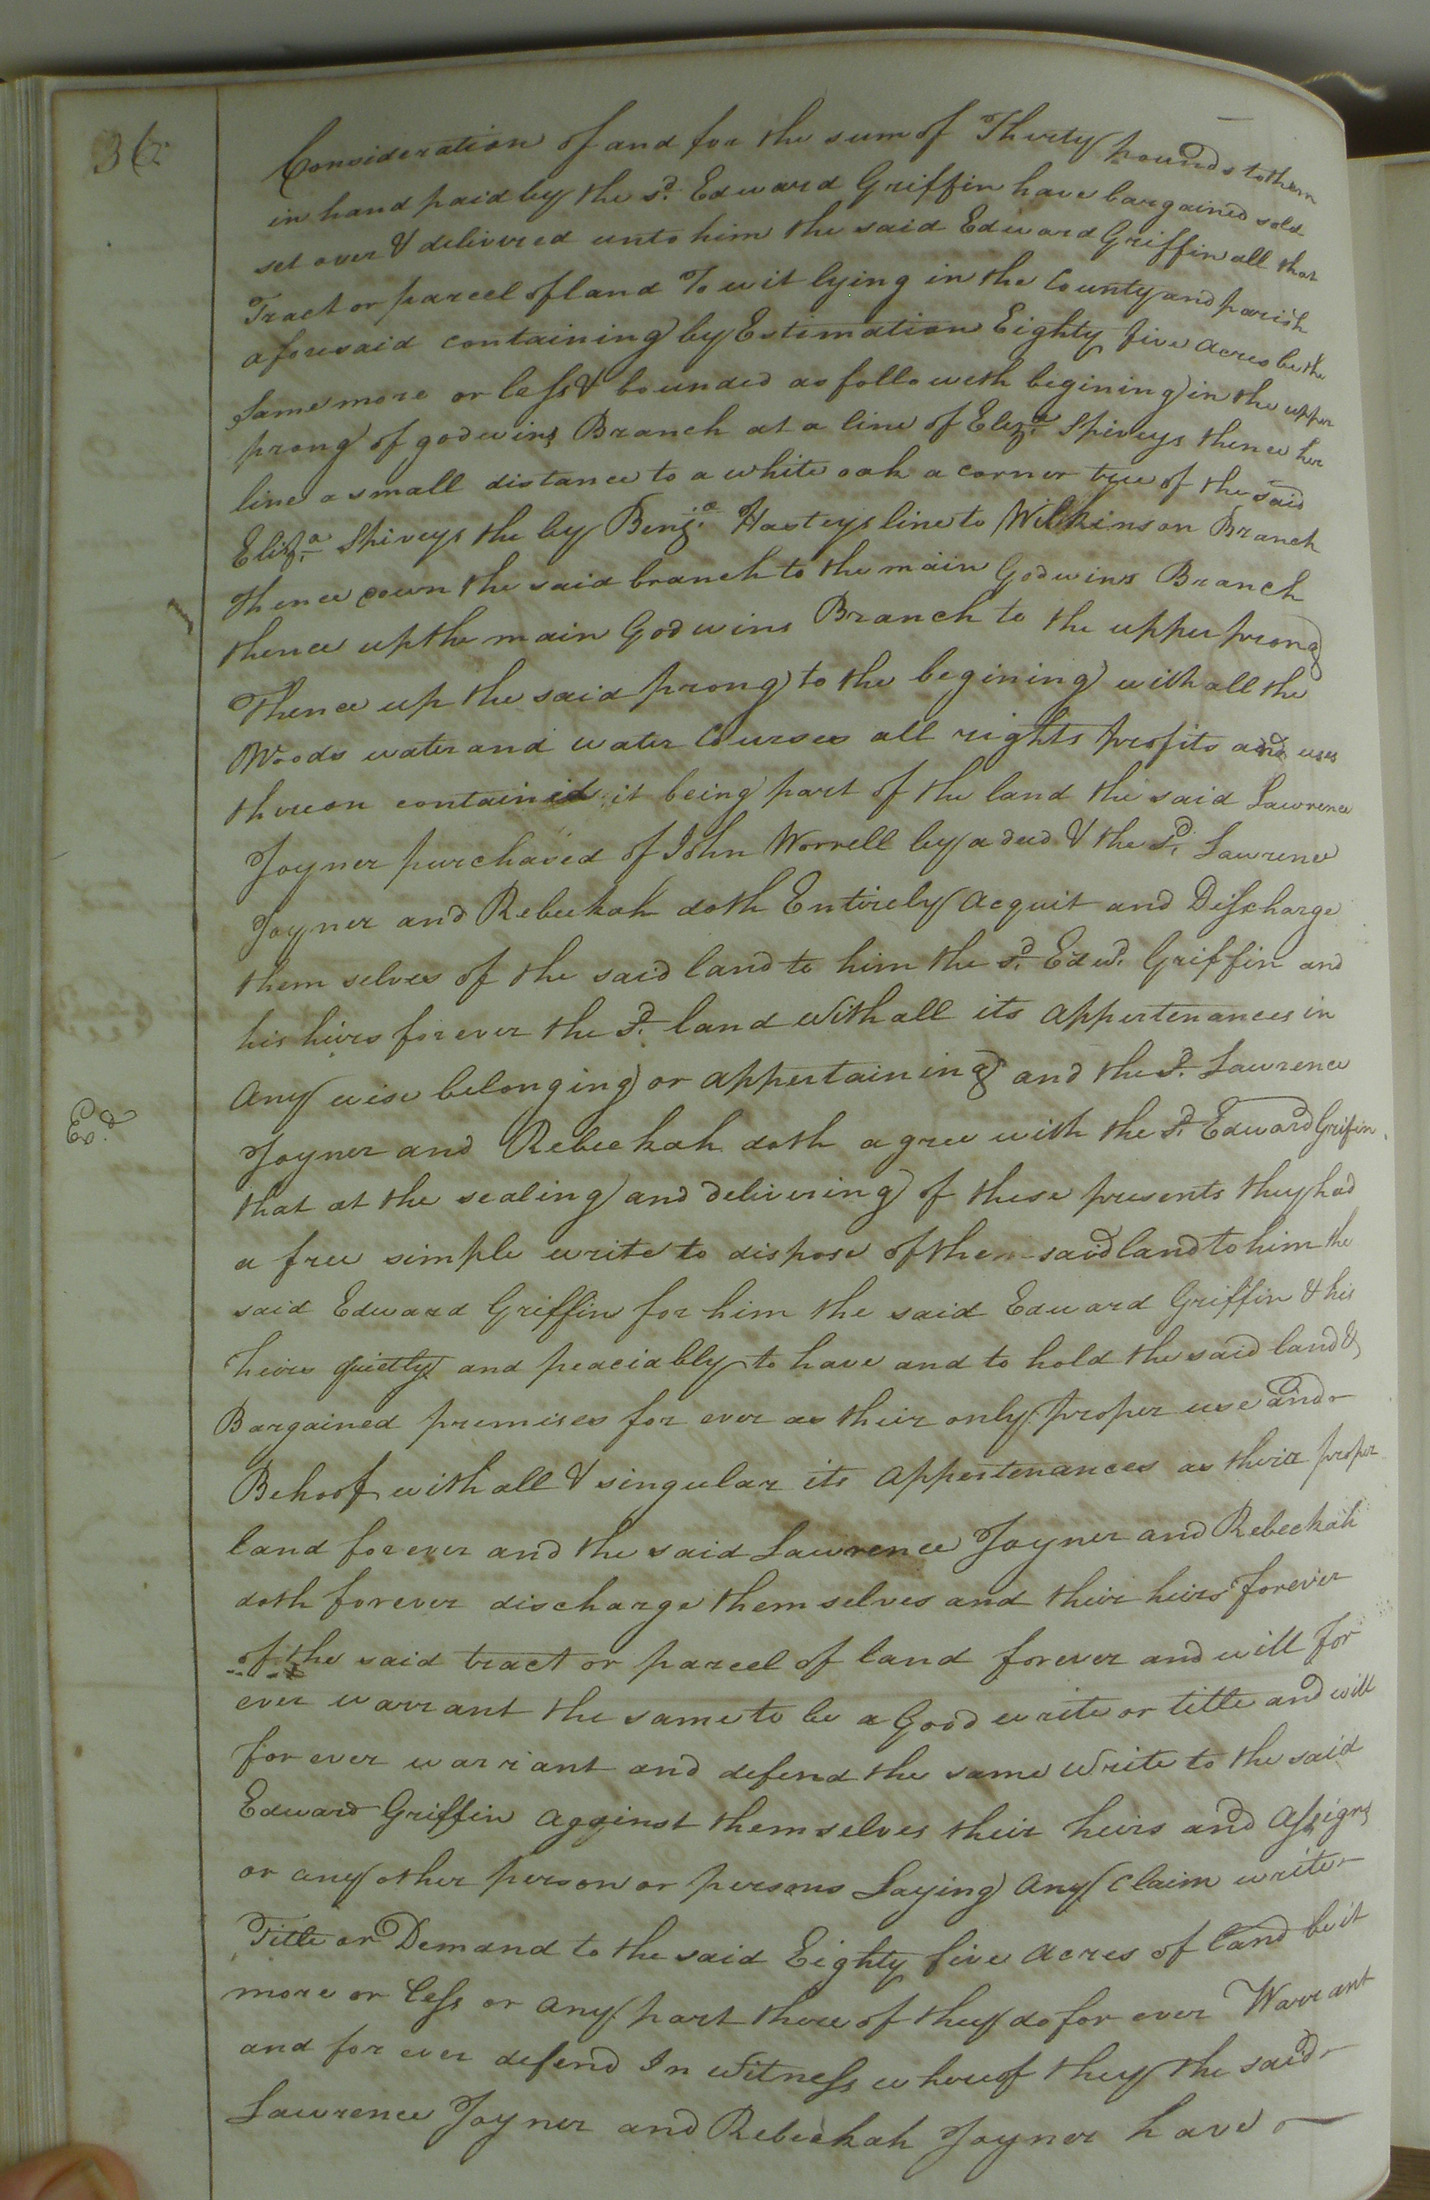 36
Consideration of and for the sum of Thirty pounds to them
in hand paid by the sd. Edward Griffin have bargained sold
set over & delivered unto him the said Edward Griffin all that
Tract or parcel of land To wit lying in the County and parish
aforesaid containing by Estimation Eighty five acres be the
same more or less & bounded as followeth begining in the upper
prong of godwins Branch at a line of Eliza. Spiveys thence her
line a small distance to a white oak a corner tree of the said
Eliza. Spiveys the by Benja. Hasteys line to Wilkinson Branch
thence down the said branch to the main Godwins Branch
thence up the main Godwins Branch to the upper prong
Thence up the said prong to the begining with all the
Woods water and water Courses all rights profits and uses
thereon contained it being part of the land the said Lawrence
Joyner purchased of John Worrell by a deed & the sd. Lawrence
Joyner and Rebeckah doth Entirely acquit and Discharge
them selves of the said land to him the sd. Edwd. Griffin and
his heirs forever the sd. land with all its appertenances in
Any wise belonging or appertaining and the sd. Lawrence
Exd.
Joyner and Rebeckah doth agree with the sd. Edward Grifin
that at the sealing and delivering of these presents they had
a free simple write to dispose of them said land to him the
said Edward Griffin for him the said Edward Griffin & his
heirs quietly and peaciably to have and to hold the said land &
Bargained premises for ever as their only proper use and
Behoof with all & singular its appertenances as their proper
land forever and the said Lawrence Joyner and Rebeckah
doth forever discharge them selves and their heirs forever
of the said tract or parcel of land forever and will for
ever warrant the same to be a Good write or title and will
for ever warriant and defend the same write to the said
Edward Griffin against themselves their heirs and assigns
or any other person or persons Laying any claim write
Title or Demand to the said Eighty five acres of land be it
more or less or any part there of they do for ever Warrant
and for ever defend In witness whereof they the said
Lawrence Joyner and Rebeckah Joyner have